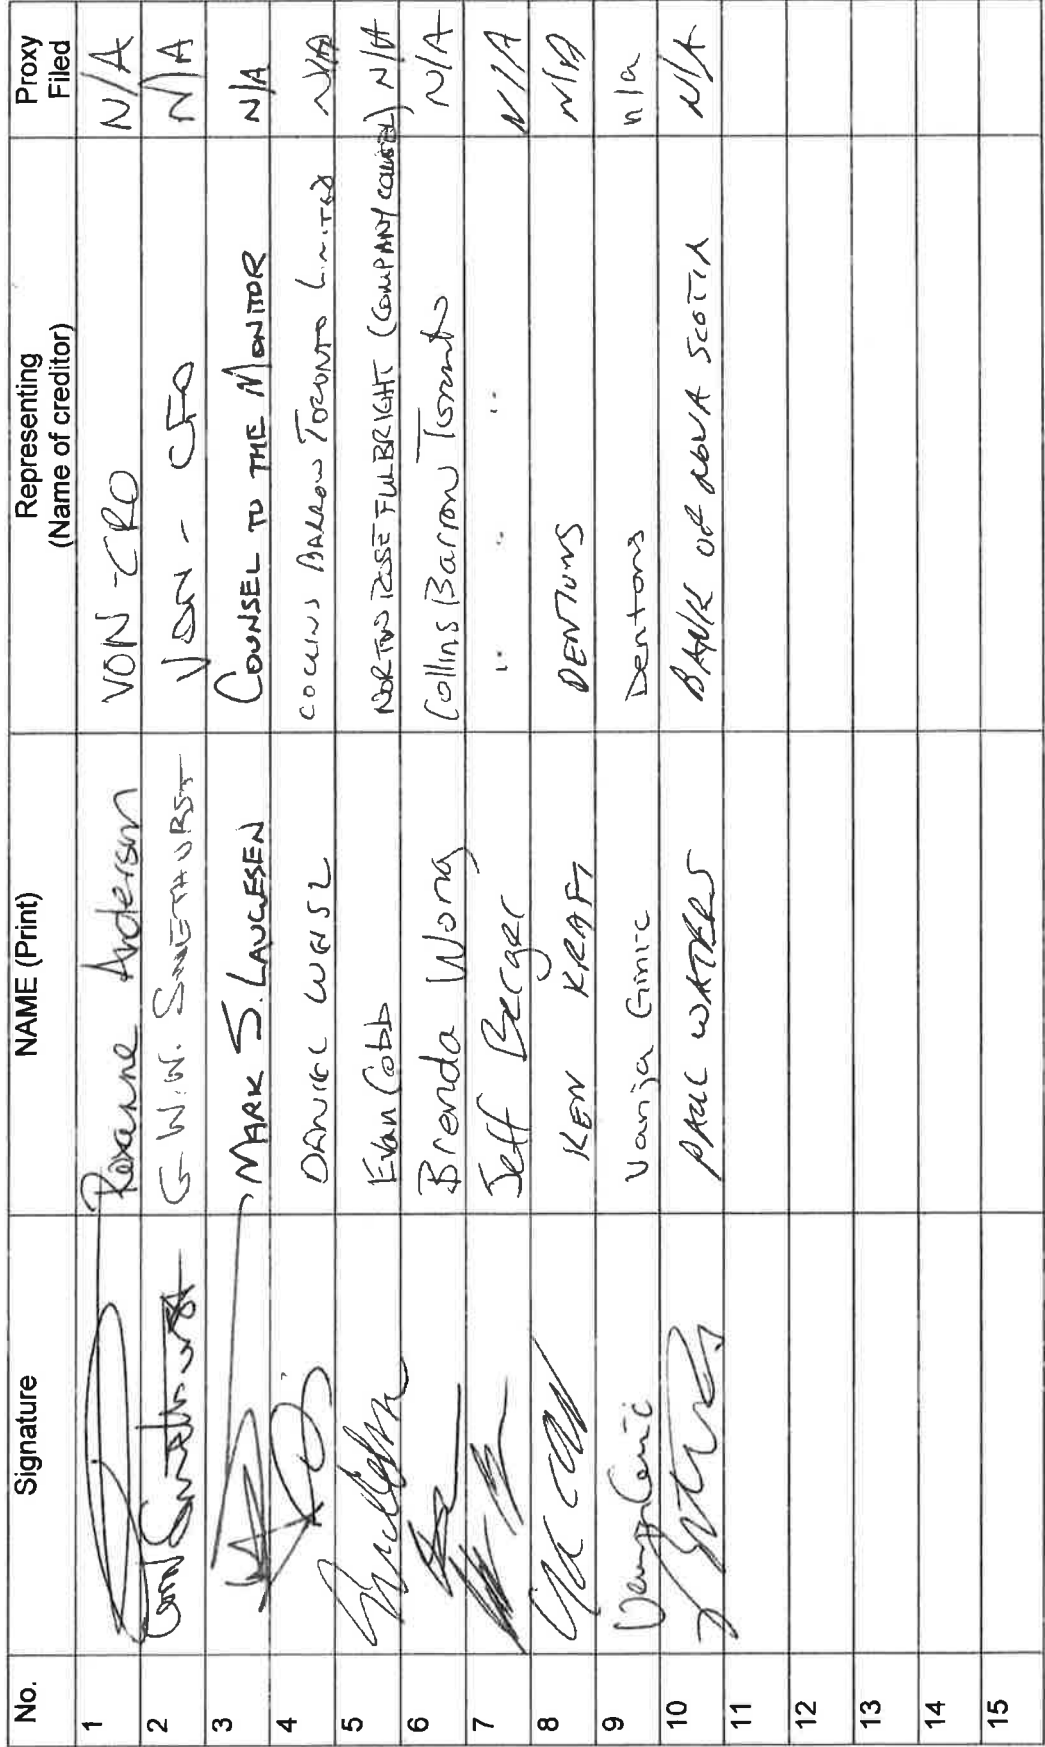 No. Signature NAME (Print) Representing (Name of creditor) Proxy Filed
1 Roxanne Anderson VON - CRO N/A
2 G.W.W. SMETHURST VON - CFO N/A
3 MARK S. LAUGESEN COUNSEL TO THE MONITOR N/A
4 DANIEL WEISZ COLLINS BARROW TORONTO LIMITED N/A
5 Evan Cobb NORTON ROSE FULBRIGHT (COMPANY COUNSEL) N/A
6 Brenda Wong Collins Barrow Toronto N/A
7 Jeff Berger " " " N/A
8 KEN KRAFT DENTONS N/A
9 Vanja Ginic Dentons n/a
10 PAUL WATERS BANK OF NOVA SCOTIA N/A
11
12
13
14
15